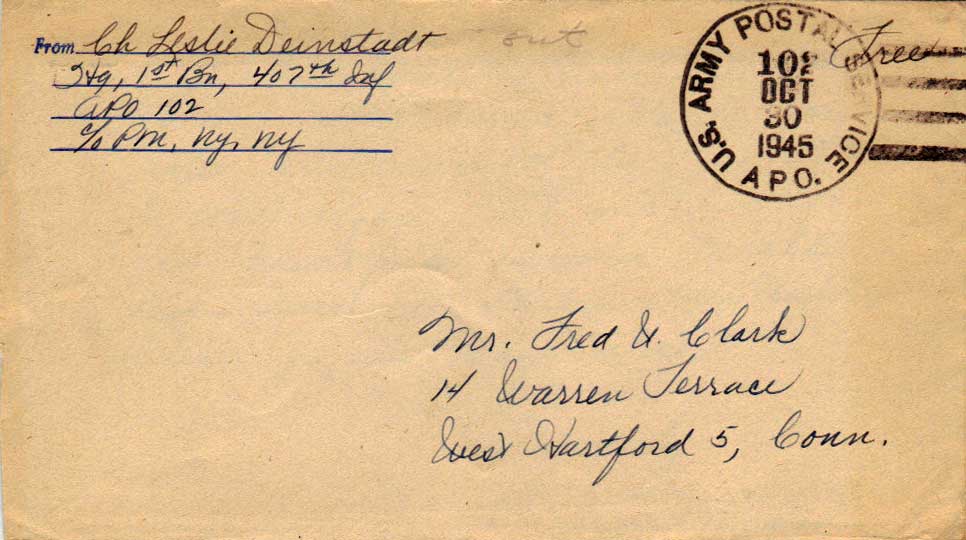 From Ch Leslie Deinstadt
Hq, 1st Bn, 407th Inf
APO 102
c/o PM, NY, NY
out
Free
U.S. ARMY POSTAL SERVICE
102
OCT
30
1945
A P O.
Mr. Fred H. Clark
14 Warren Terrace
West Hartford 5, Conn.